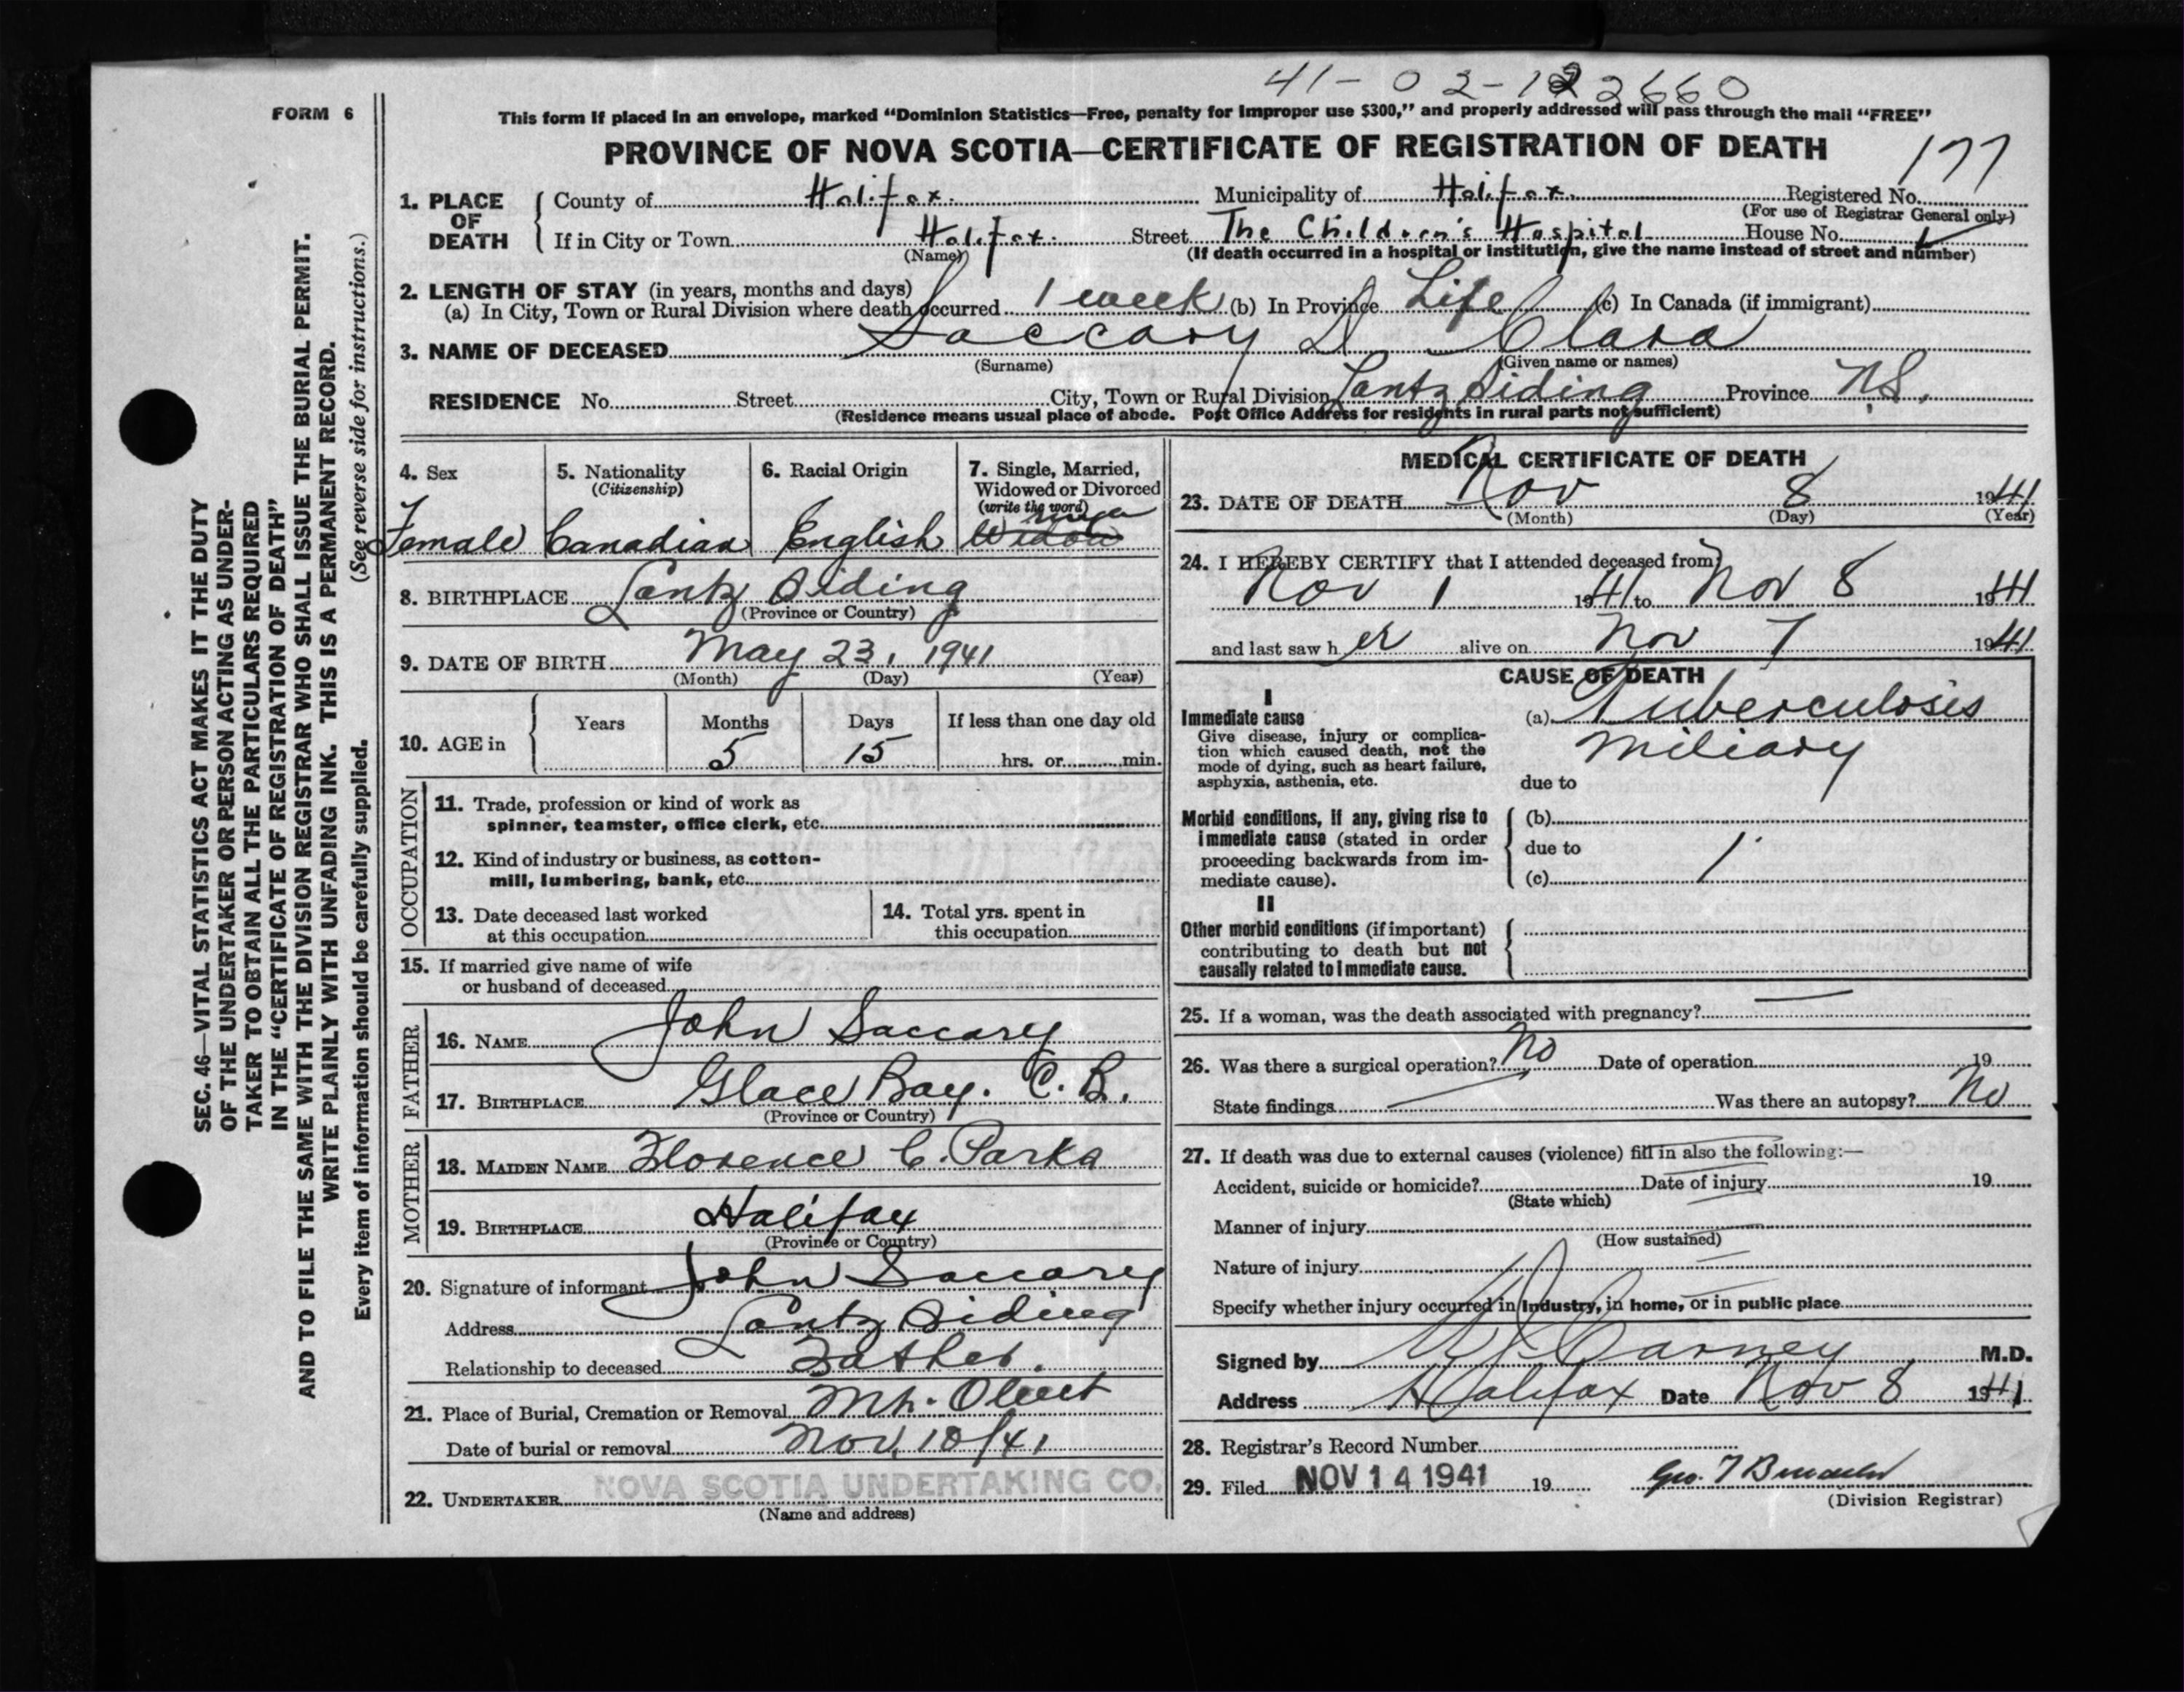 41-02-122660
FORM 6
This form if placed in an envelope, marked “Dominion Statistics—Free, penalty for improper use $300,” and properly addressed will pass through the mail “FREE”
PROVINCE OF NOVA SCOTIA—CERTIFICATE OF REGISTRATION OF DEATH
177
1. PLACE OF DEATH
County of Halifax. Municipality of Halifax. Registered No.
(For use of Registrar General only)
If in City or Town Halifax. Street The Children's Hospital House No.
(Name) (If death occurred in a hospital or institution, give the name instead of street and number)
2. LENGTH OF STAY (in years, months and days)
(a) In City, Town or Rural Division where death occurred 1 week (b) In Province Life (c) In Canada (if immigrant)
3. NAME OF DECEASED Saccary Clara
(Surname) (Given name or names)
RESIDENCE No. Street City, Town or Rural Division Lantz Siding Province N.S.
(Residence means usual place of abode. Post Office Address for residents in rural parts not sufficient)
4. Sex
Female
5. Nationality
(Citizenship)
Canadian
6. Racial Origin
English
7. Single, Married,
Widowed or Divorced
(write the word)
Widow
8. BIRTHPLACE Lantz Siding
(Province or Country)
9. DATE OF BIRTH May 23, 1941
(Month) (Day) (Year)
10. AGE in
Years Months Days If less than one day old
5 15 hrs. or min.
OCCUPATION
11. Trade, profession or kind of work as
spinner, teamster, office clerk, etc.
12. Kind of industry or business, as cotton-
mill, lumbering, bank, etc.
13. Date deceased last worked
at this occupation
14. Total yrs. spent in
this occupation
15. If married give name of wife
or husband of deceased
FATHER
16. NAME John Saccary
17. BIRTHPLACE Glace Bay. C.B.
(Province or Country)
MOTHER
18. MAIDEN NAME Florence C. Parks
19. BIRTHPLACE Halifax
(Province or Country)
20. Signature of informant John Saccary
Address Lantz Siding
Relationship to deceased Father.
21. Place of Burial, Cremation or Removal Mt. Olivet
Date of burial or removal Nov. 10/41
22. UNDERTAKER NOVA SCOTIA UNDERTAKING CO.
(Name and address)
MEDICAL CERTIFICATE OF DEATH
23. DATE OF DEATH Nov 8 1941
(Month) (Day) (Year)
24. I HEREBY CERTIFY that I attended deceased from:
Nov 1 1941 to Nov 8 1941
and last saw h er alive on Nov 7 1941
CAUSE OF DEATH
I
Immediate cause
Give disease, injury or complica-
tion which caused death, not the
mode of dying, such as heart failure,
asphyxia, asthenia, etc.
(a) Tuberculosis
miliary
due to
Morbid conditions, if any, giving rise to
immediate cause (stated in order
proceeding backwards from im-
mediate cause).
(b)
due to
(c)
II
Other morbid conditions (if important)
contributing to death but not
causally related to immediate cause.
25. If a woman, was the death associated with pregnancy?
26. Was there a surgical operation? No Date of operation 19
State findings Was there an autopsy? No
27. If death was due to external causes (violence) fill in also the following:—
Accident, suicide or homicide? Date of injury 19
(State which)
Manner of injury
(How sustained)
Nature of injury
Specify whether injury occurred in Industry, in home, or in public place
Signed by Carney M.D.
Address Halifax Date Nov 8 1941
28. Registrar's Record Number
29. Filed NOV 14 1941 19 Geo. T
(Division Registrar)
SEC. 46—VITAL STATISTICS ACT MAKES IT THE DUTY
OF THE UNDERTAKER OR PERSON ACTING AS UNDER-
TAKER TO OBTAIN ALL THE PARTICULARS REQUIRED
IN THE “CERTIFICATE OF REGISTRATION OF DEATH”
AND TO FILE THE SAME WITH THE DIVISION REGISTRAR WHO SHALL ISSUE THE BURIAL PERMIT.
WRITE PLAINLY WITH UNFADING INK. THIS IS A PERMANENT RECORD.
Every item of information should be carefully supplied. (See reverse side for instructions.)